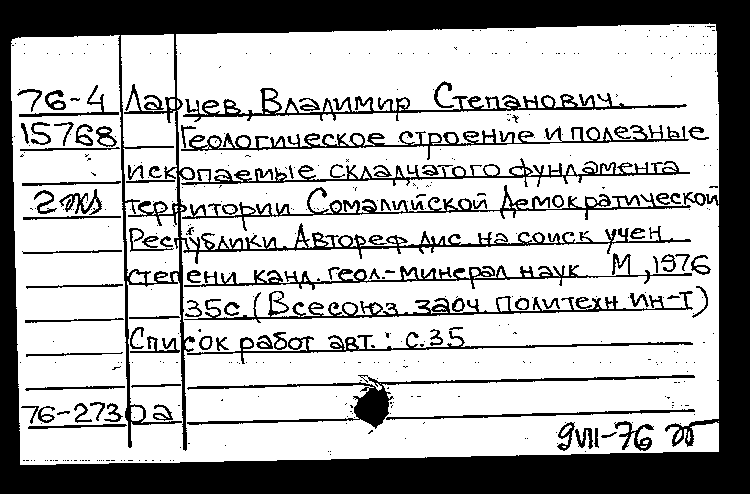 76-4 Ларцев, Владимир Степанович.
15768 Геологическое строение и полезные
ископаемые складчатого фундамента
2 экз территории Сомалийской Демократической
Республики. Автореф. дис. на соиск учен.
степени канд. геол.-минерал наук М., 1976
35с. (Всесоюз. заоч. политехн. ин-т)
Список работ авт.: с.35
76-2730а
9VII-76